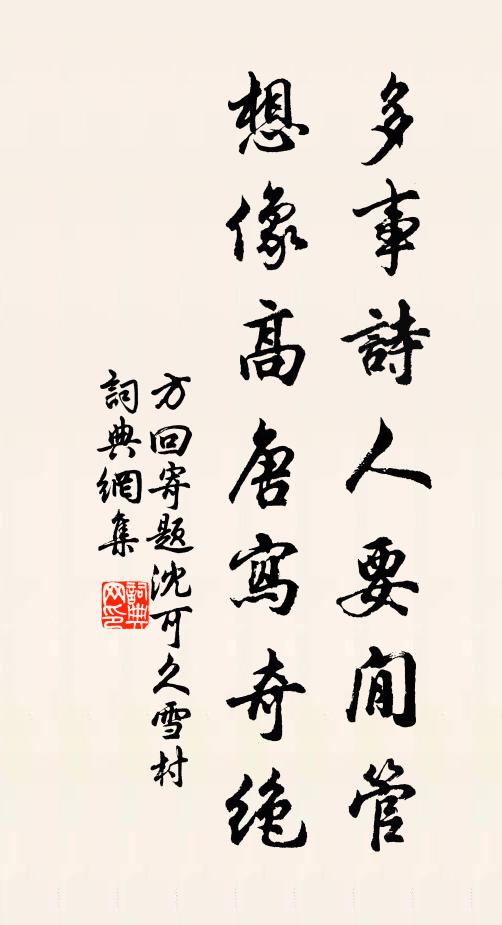 多事詩人要閒管
想像高唐寫奇絶
方回寄题沈可久雪村
詞典網集
詞典網印